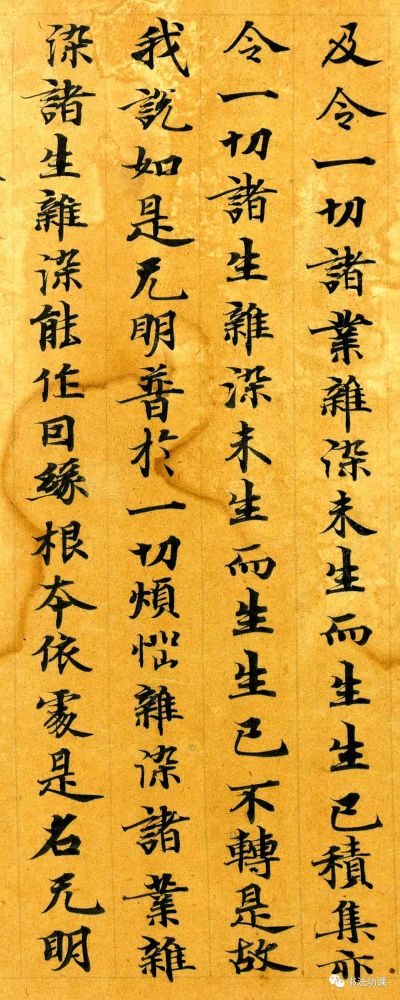 及令一切諸業雜染未生而生生已積集亦
令一切諸生雜染未生而生生已不轉是故
我説如是无明普於一切煩惱雜染諸業雜
染諸生雜染能作因緣根本依處是名无明
书法功课